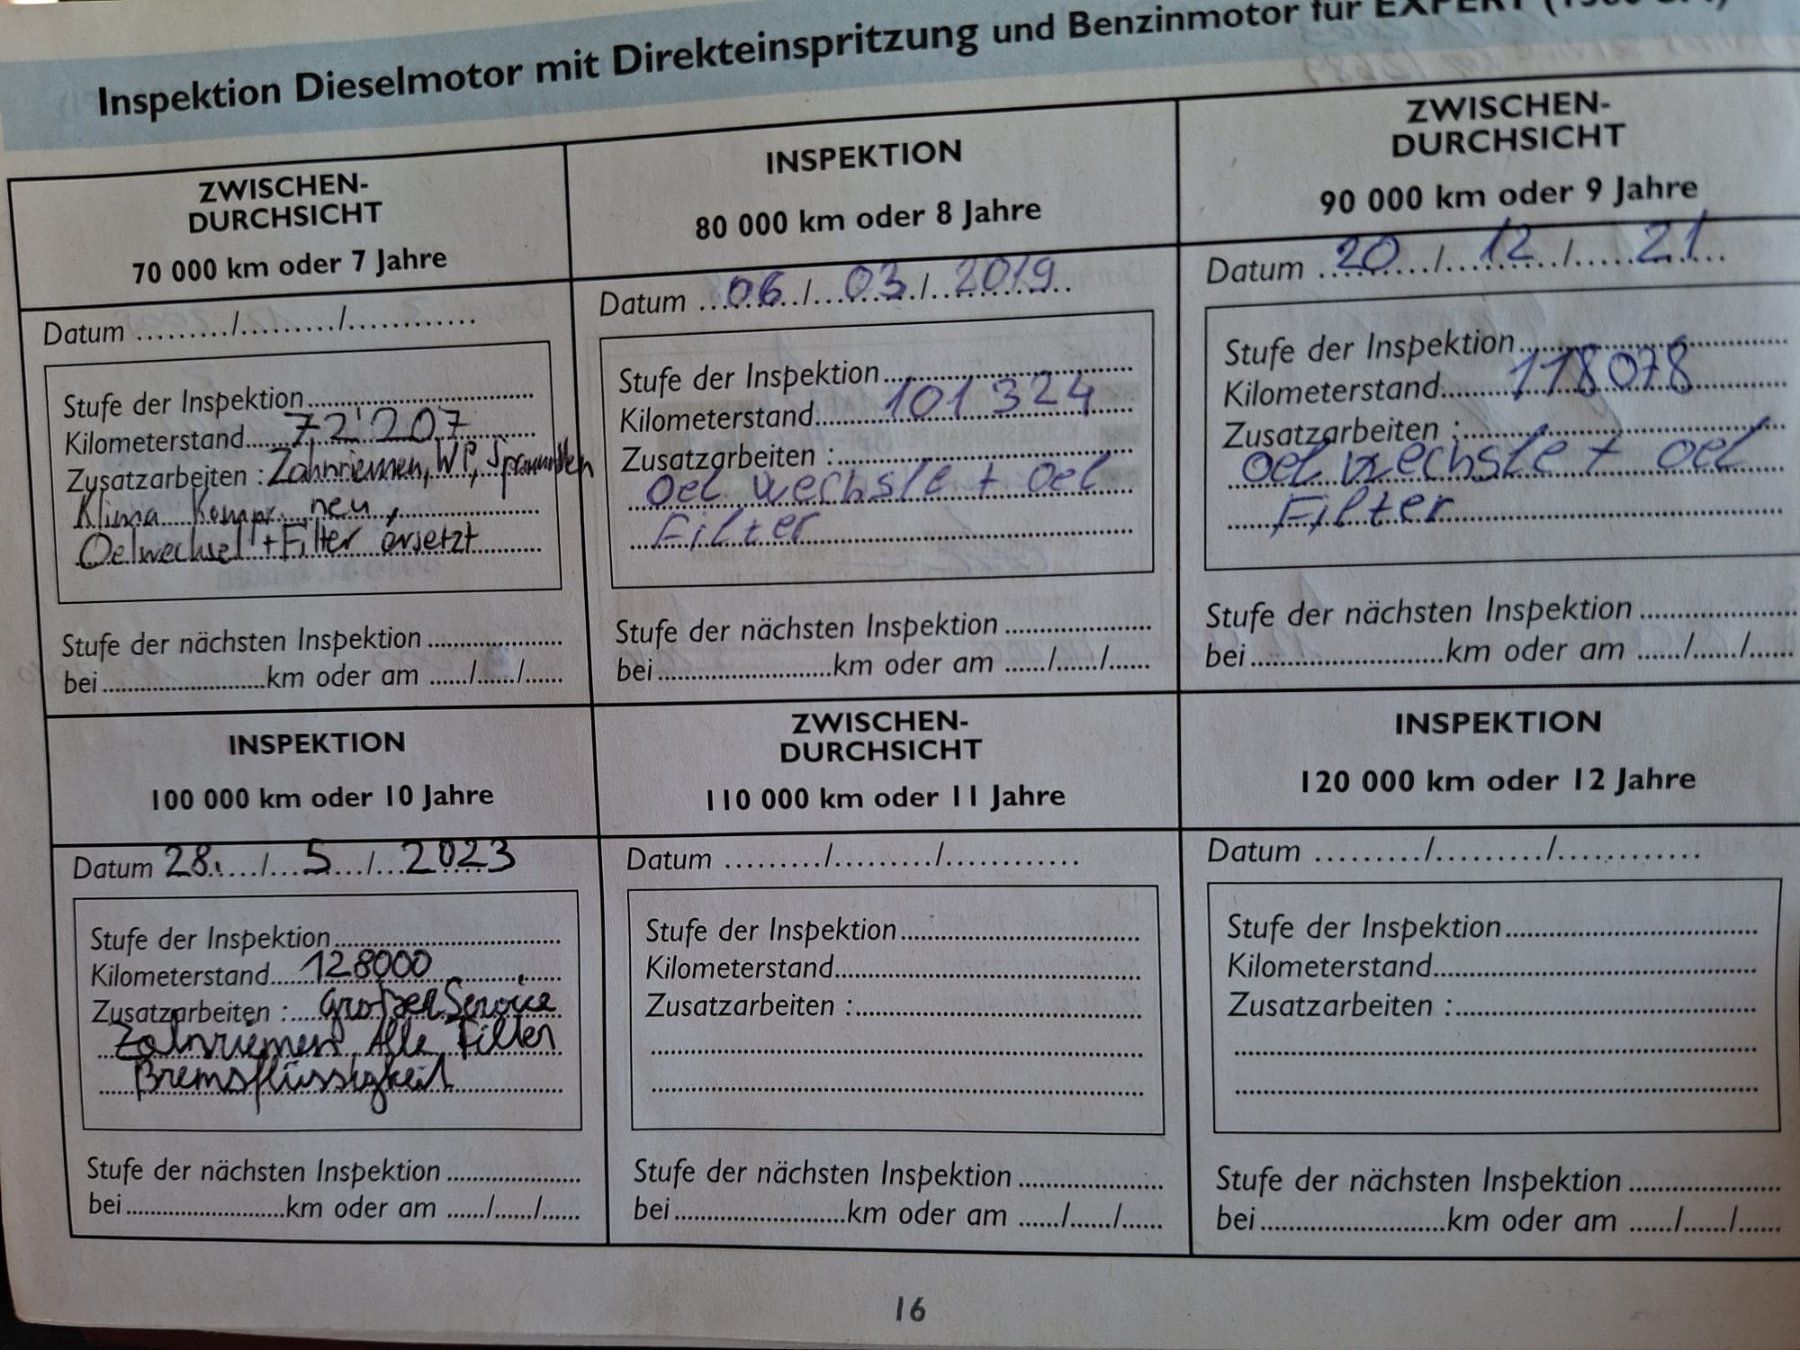 Inspektion Dieselmotor mit Direkteinspritzung und Benzinmotor für EXPERT
ZWISCHEN-
DURCHSICHT
70 000 km oder 7 Jahre
Datum ........./........./............
Stufe der Inspektion
Kilometerstand 72'207
Zusatzarbeiten : Zahnriemen, WP,
Klima Kompr. neu,
Oelwechsel + Filter ersetzt
Stufe der nächsten Inspektion
bei ........ km oder am ....../....../......
INSPEKTION
80 000 km oder 8 Jahre
Datum 06 / 03 / 2019
Stufe der Inspektion
Kilometerstand 101 324
Zusatzarbeiten :
Oel wechsle + Oel
Filter
Stufe der nächsten Inspektion
bei ........ km oder am ....../....../......
ZWISCHEN-
DURCHSICHT
90 000 km oder 9 Jahre
Datum 20 / 12 / 21
Stufe der Inspektion
Kilometerstand 118078
Zusatzarbeiten :
Oel wechsle + oel
Filter
Stufe der nächsten Inspektion
bei ........ km oder am ....../....../......
INSPEKTION
100 000 km oder 10 Jahre
Datum 28. / 5 / 2023
Stufe der Inspektion
Kilometerstand 128000
Zusatzarbeiten : Großer Service
Zahnriemen Alle Filter
Bremsflüssigkeit
Stufe der nächsten Inspektion
bei ........ km oder am ....../....../......
ZWISCHEN-
DURCHSICHT
110 000 km oder 11 Jahre
Datum ........./........./............
Stufe der Inspektion
Kilometerstand
Zusatzarbeiten :
Stufe der nächsten Inspektion
bei ........ km oder am ....../....../......
INSPEKTION
120 000 km oder 12 Jahre
Datum ........./........./............
Stufe der Inspektion
Kilometerstand
Zusatzarbeiten :
Stufe der nächsten Inspektion
bei ........ km oder am ....../....../......
16